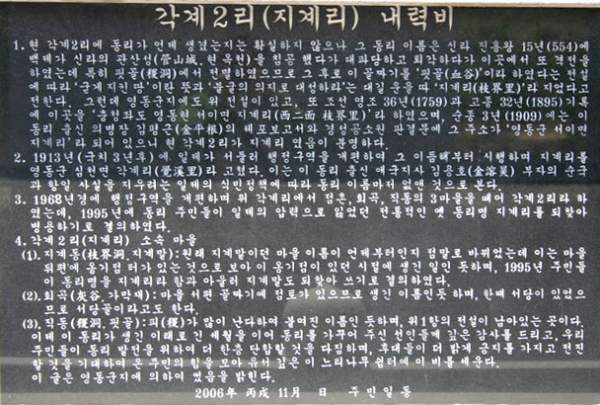 각계2리(지계리) 내력비
1. 현 각계2리에 동리가 언제 생겼는지는 확실하지 않으나 그 동리 이름은 신라 진흥왕 15년(554)에
백제가 신라의 관산성(管山城, 현 옥천)을 침공했다가 대파당하고 퇴각하다가 이곳에서 또 격전을
하였는데 특히 핏골(稷洞)에서 전멸하였으므로 그 후로 이 골짜기를 '핏골(血谷)'이라 하였다는 전설
에 따라 지은 따 '지계리(枝界里)'라 지었다고
전한다. 그런데 영동군지에도 위 전설이 있고, 또 조선 영조 36년(1759)과 고종 32년(1895)기록
에 이곳을 '충청도 영동현 서이면 지계리(西二面 枝界里)'라 하였으며, 순종 3년(1909)에는 이
동리 출신 의병장 김평근(金平根)의 체포보고서와 경성공소원 판결문에 그 주소가 '영동군 서이면
지계리'라 되어 있으니 현 각계리가 지계리 였음이 분명하다.
2. 1913년(국치 3년후)에 일제가 서둘러 행정구역을 개편하여 그 이듬해부터 시행하며 지계리를
영동군 심천면 각계리(覺溪里)라 고쳤다. 이는 이 동리 출신 애국지사 김용호 부자의 순국
과 항일 사실을 지우려는 일제의 식민정책에 따라 동리 이름마저 없앤 것으로 본다.
3. 1968년경에 행정구역을 개편하며 위 각계리에서 점촌, 회곡, 직동의 3마을을 떼어 각계2리라 하
였는데, 1995년에 동리 주민들이 일제의 압력으로 잃었던 전통적인 옛 동리명 지계리를 되찾아
병용하기로 결의하였다.
4. 각계2리(지계리) 소속 마을
(1). 지계동(枝界洞, 지계말) : 원래 지계말이던 마을 이름이 언제부터인지 점말로 바뀌었는데 이는 마을
뒤편에 옹기점 터가 있는 것으로 보아 이 옹기점이 있던 시절에 생긴 일인 듯하며, 1995년 주민들
이 동리명을 지계리라 함과 아울러 지계말도 되찾아 쓰기로 결의하였다.
(2). 회곡(灰谷, 가악재) : 마을 서편 골짜기에 점토가 있으므로 생긴 이름인듯 하며, 한때 서당이 있었으
므로 서당골이라고도 한다.
(3). 직동(稷洞, 핏골) : 피(稷)가 많이 난다하여 붙여진 이름인 듯하며, 위 1항의 전설이 남아있는 곳이다.
이제 이 동리가 생긴 이래로 긴 세월을 이어 동리를 가꾸어 주신 선인들께 깊은 감사를 드리고, 우리
주민들이 동리 발전을 위하여 더 한층 단합할 것을 다짐하며, 후대들이 더 밝게 긍지를 가지고 전진
할 것을 기대하여 온 주민의 힘을 모아 유서 깊은 이 느티나무 쉼터에 이 비를 세운다.
이 글은 영동군지에 의하여 썼음을 밝힌다.
2006年 丙戌 11月 日 주민일동